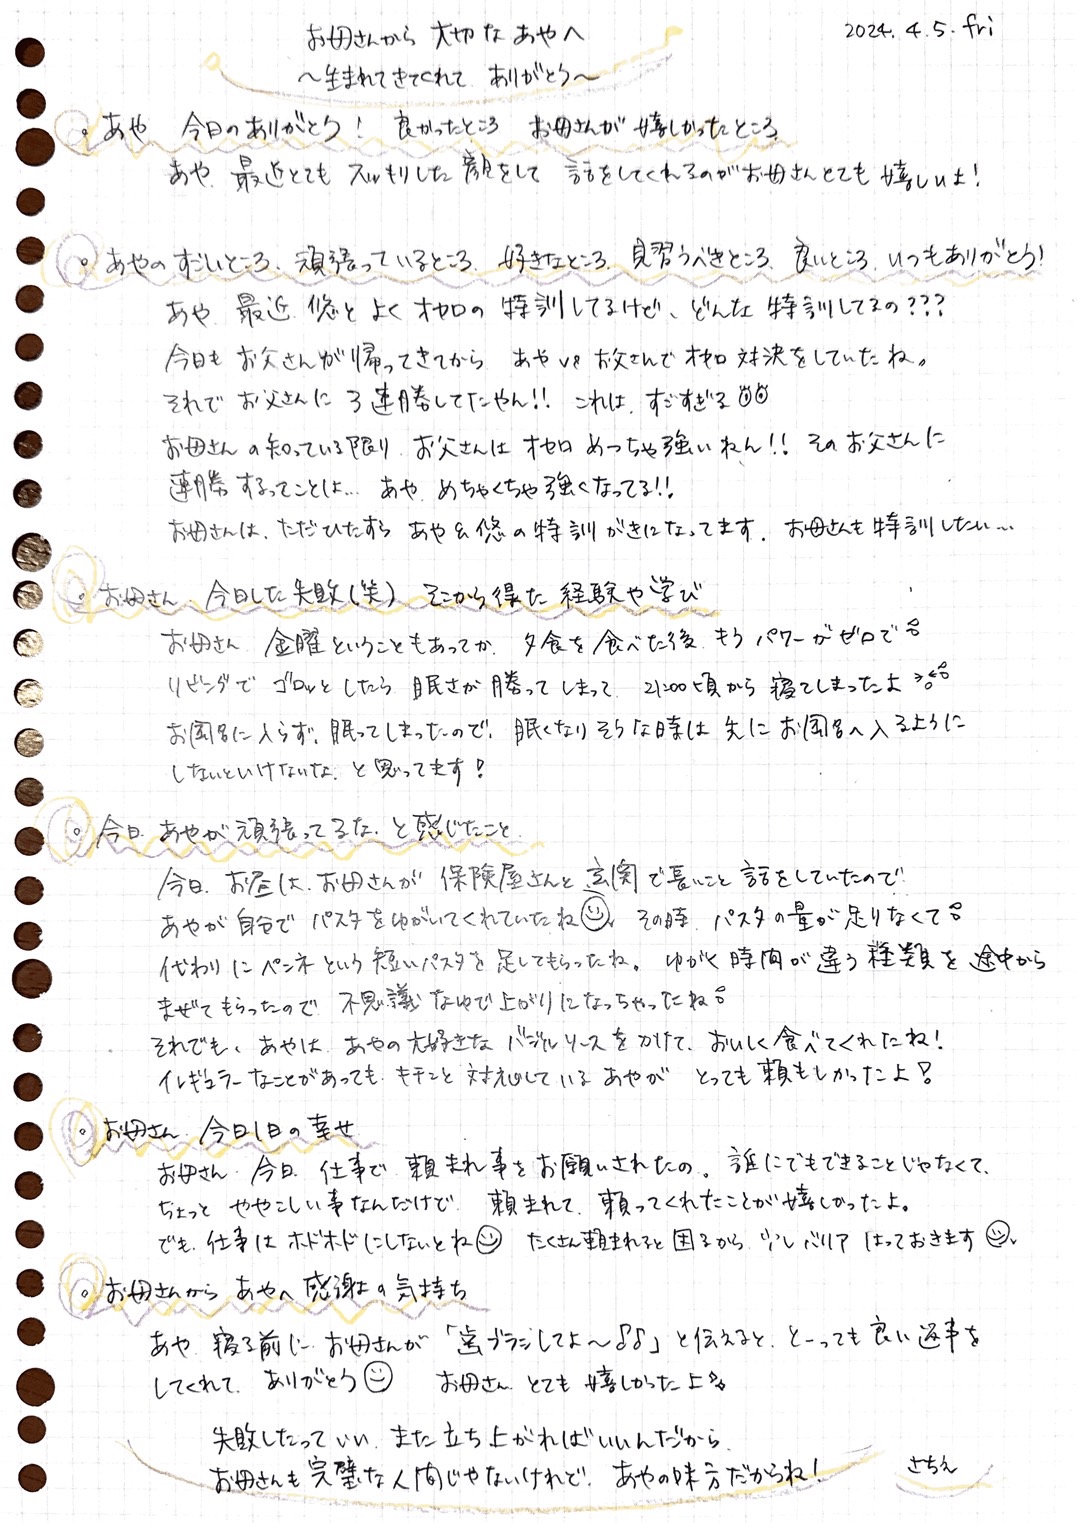 お母さんから 大切な あやへ
2024.4.5.fri
〜生まれてきてくれて ありがとう〜
。あや 今日のありがとう! 良かったところ お母さんが 嬉しかったところ
あや 最近とても スッキリした 顔をして 話をしてくれるのがお母さんとても 嬉しいよ!
。あやの すごいところ、頑張っているところ、好きなところ、見習うべきところ、良いところ、いつもありがとう!
あや 最近 悠と よく オセロの 特訓してるけど、どんな 特訓してるの???
今日も お父さんが 帰ってきてから あや vs お父さんで オセロ 対決をしていたね。
それで お父さんに 3連勝してたやん!! これは、すごすぎる
お母さんの知っている限り お父さんは オセロ めっちゃ強いねん!! その お父さんに
連勝するってことは… あや めちゃくちゃ 強くなってる!!
お母さんは、ただひたすら あや & 悠の 特訓がきになってます。お母さんも 特訓したい…
。お母さん 今日した失敗(笑) そこから得た 経験や学び
お母さん 金曜ということもあってか、夕食を食べた後 もう パワーがゼロで
リビングで ゴロッとしたら 眠さが 勝ってしまって 21:00頃から 寝てしまったよ
お風呂に入らず、眠ってしまったので、眠くなりそうな時は 先に お風呂へ入るように
しないといけないな と思ってます!
。今日 あやが頑張ってるな と感じたこと
今日 お昼は、お母さんが 保険屋さんと 玄関で長いこと 話をしていたので
あやが 自分で パスタをゆがいてくれていたね その時 パスタの量が足りなくて
代わりに ペンネという 短いパスタを 足してもらったね。 ゆがく時間が 違う 種類を 途中から
まぜてもらったので 不思議なゆで上がりになっちゃったね
それでも、あやは、あやの大好きな バジルソースをかけて、おいしく食べてくれたね!
イレギュラーなことがあっても キチンと 対応している あやが とっても 頼もしかったよ!
。お母さん 今日1日の幸せ
お母さん 今日 仕事で 頼まれ事を お願いされたの。誰にでもできることじゃなくて、
ちょっと ややこしい事なんだけど 頼まれて、頼ってくれたことが嬉しかったよ。
でも、仕事は ホドホドにしないとね たくさん頼まれると 困るから 少し バリア はっておきます
。お母さんから あやへ 感謝の気持ち
あや 寝る前に お母さんが 「歯ブラシしてよ〜♪♪」と伝えると、とーっても 良い返事を
してくれて、ありがとう お母さん とても 嬉しかったよ
失敗したっていい、また立ち上がればいいんだから
お母さんも 完璧な人間じゃないけれど、あやの味方だからね!
さちえ